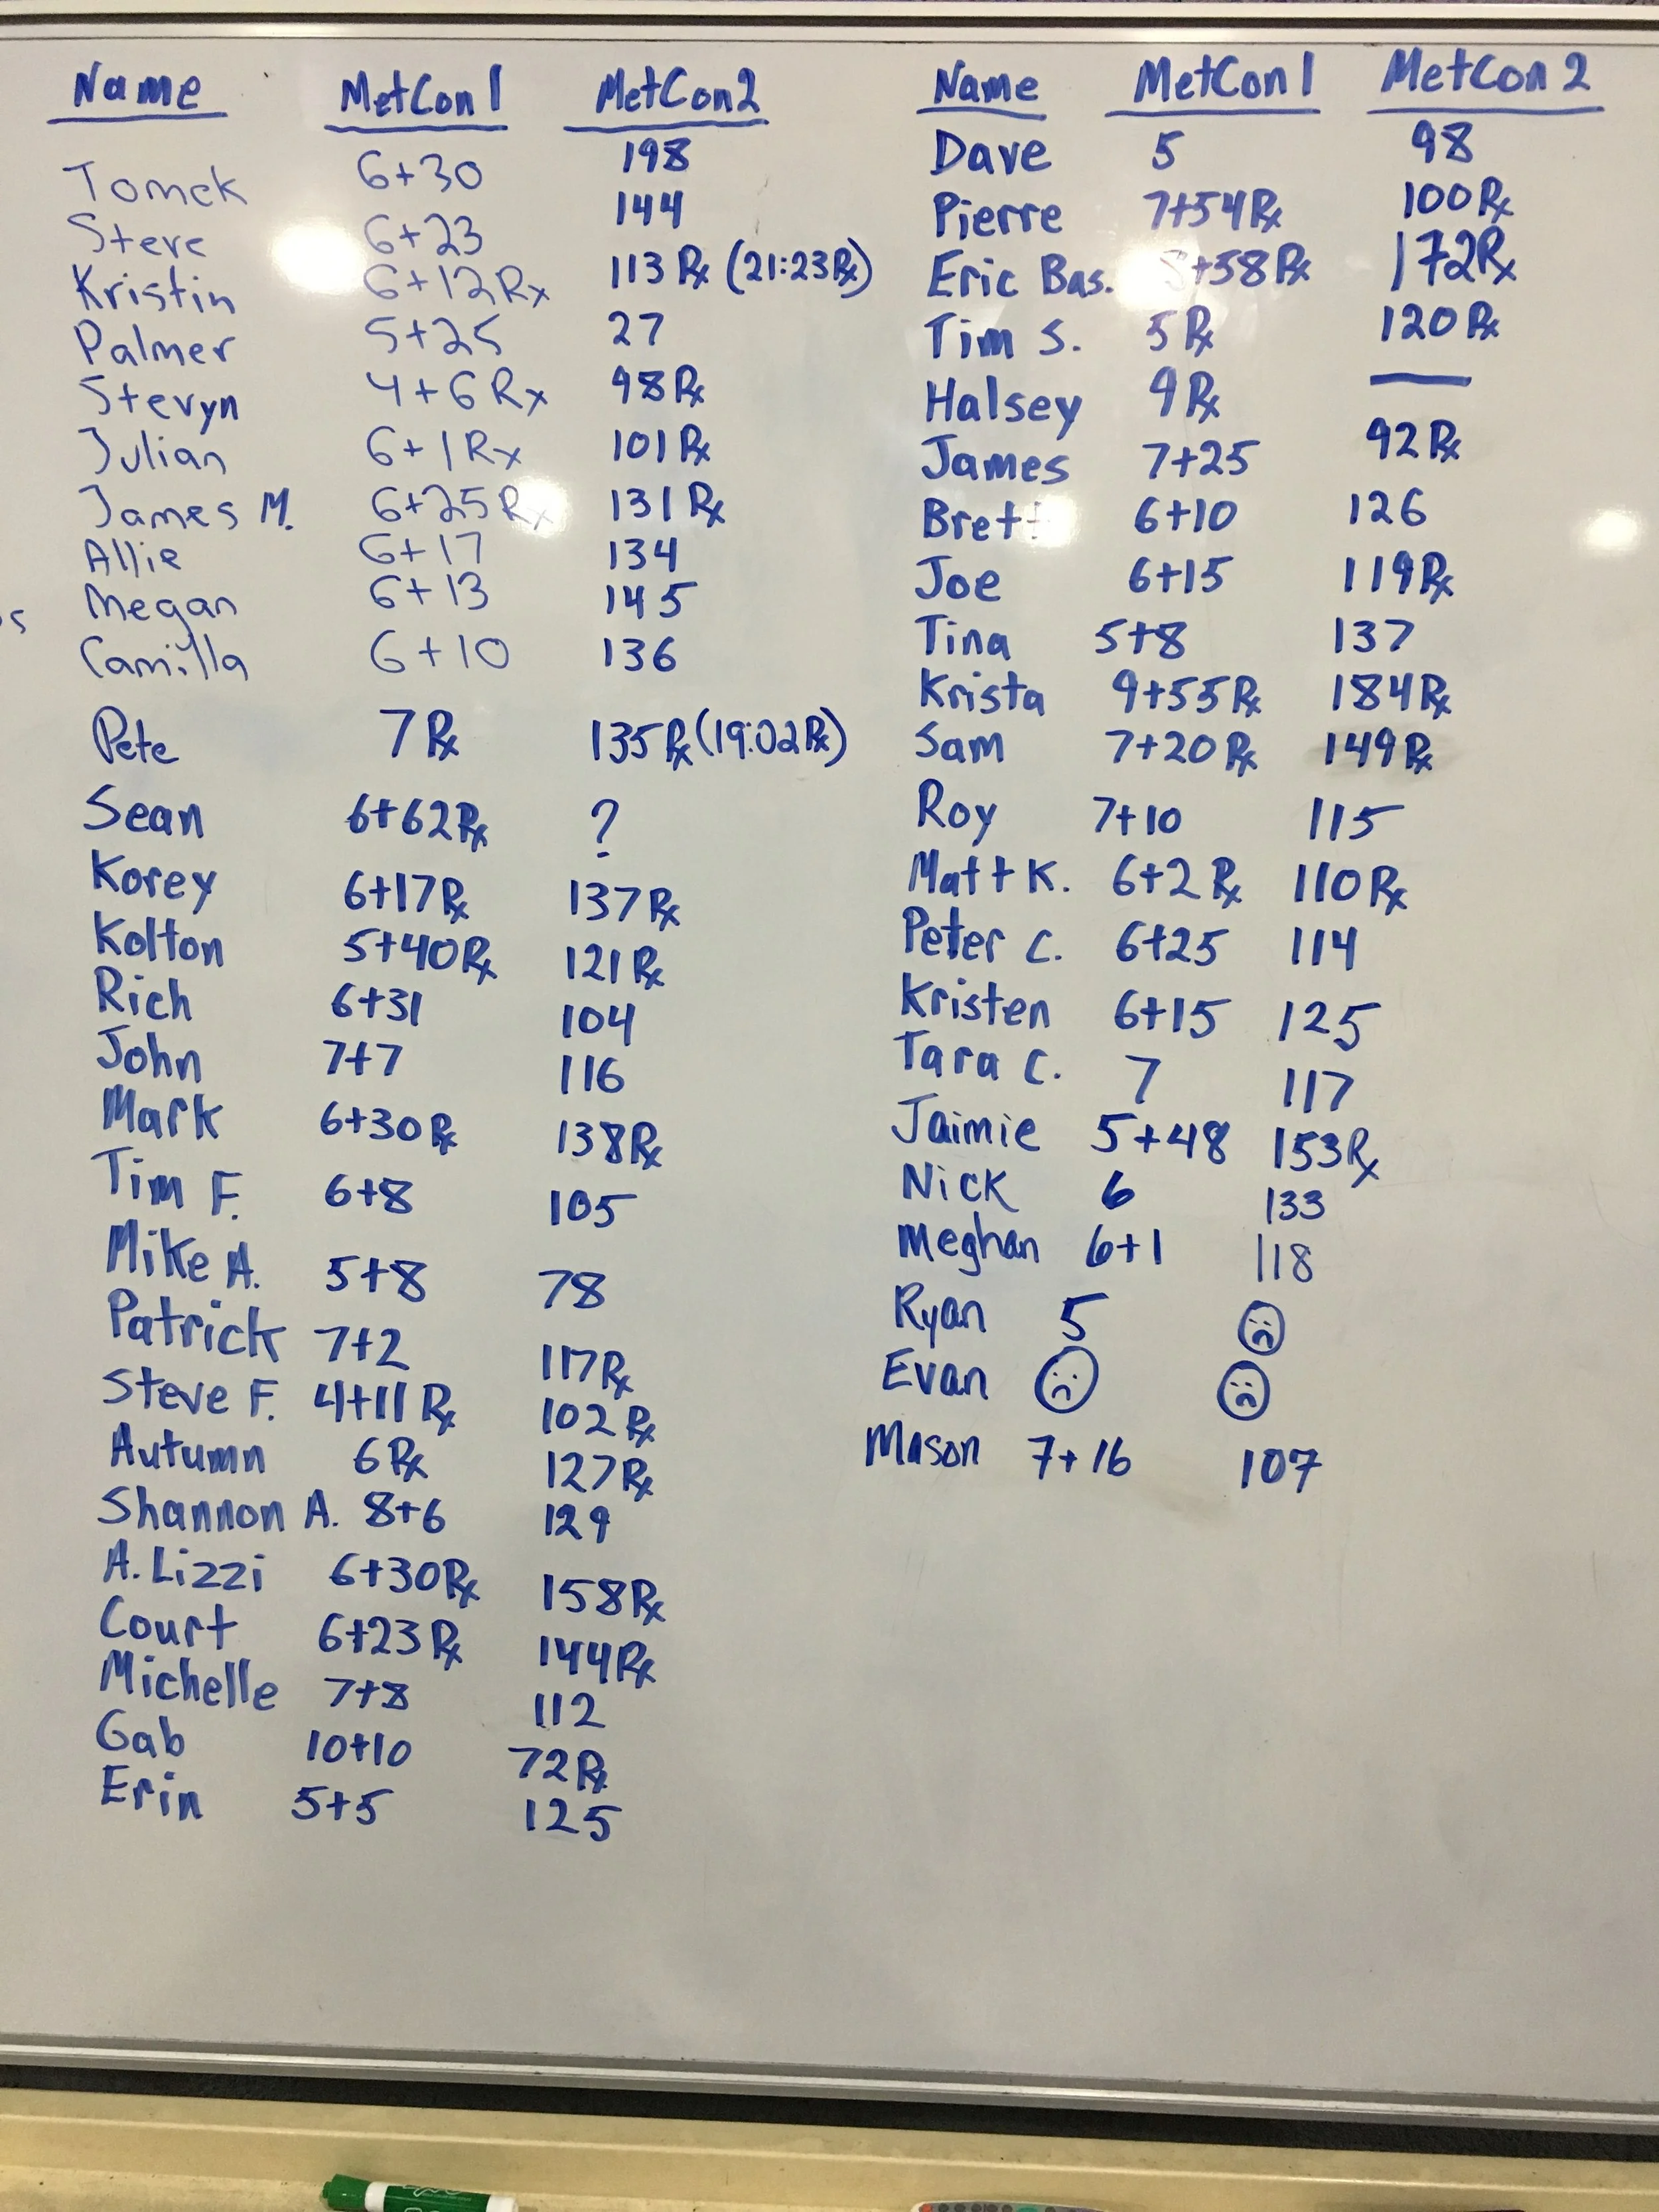 Name MetCon 1 MetCon 2
Tomek 6+30 198
Steve 6+23 144
Kristin 6+12 Rx 113 Rx (21:23 Rx)
Palmer 5+25 27
Stevyn 4+6 Rx 98 Rx
Julian 6+1 Rx 101 Rx
James M. 6+25 Rx 131 Rx
Allie 6+17 134
Megan 6+13 145
Camilla 6+10 136
Pete 7 Rx 135 Rx (19:02 Rx)
Sean 6+62 Rx ?
Korey 6+17 Rx 137 Rx
Kolton 5+40 Rx 121 Rx
Rich 6+31 104
John 7+7 116
Mark 6+30 Rx 138 Rx
Tim F. 6+8 105
Mike A. 5+8 78
Patrick 7+2 117 Rx
Steve F. 4+11 Rx 102 Rx
Autumn 6 Rx 127 Rx
Shannon A. 8+6 129
A. Lizzi 6+30 Rx 158 Rx
Court 6+23 Rx 144 Rx
Michelle 7+8 112
Gab 10+10 72 Rx
Erin 5+5 125
Name MetCon 1 MetCon 2
Dave 5 98
Pierre 7+54 Rx 100 Rx
Eric Bas. +58 Rx 172 Rx
Tim S. 5 Rx 120 Rx
Halsey 9 Rx —
James 7+25 92 Rx
Brett 6+10 126
Joe 6+15 119 Rx
Tina 5+8 137
Krista 9+55 Rx 184 Rx
Sam 7+20 Rx 149 Rx
Roy 7+10 115
Matt K. 6+2 Rx 110 Rx
Peter C. 6+25 114
Kristen 6+15 125
Tara C. 7 117
Jaimie 5+48 153 Rx
Nick 6 133
Meghan 6+1 118
Ryan 5
Evan
Mason 7+16 107